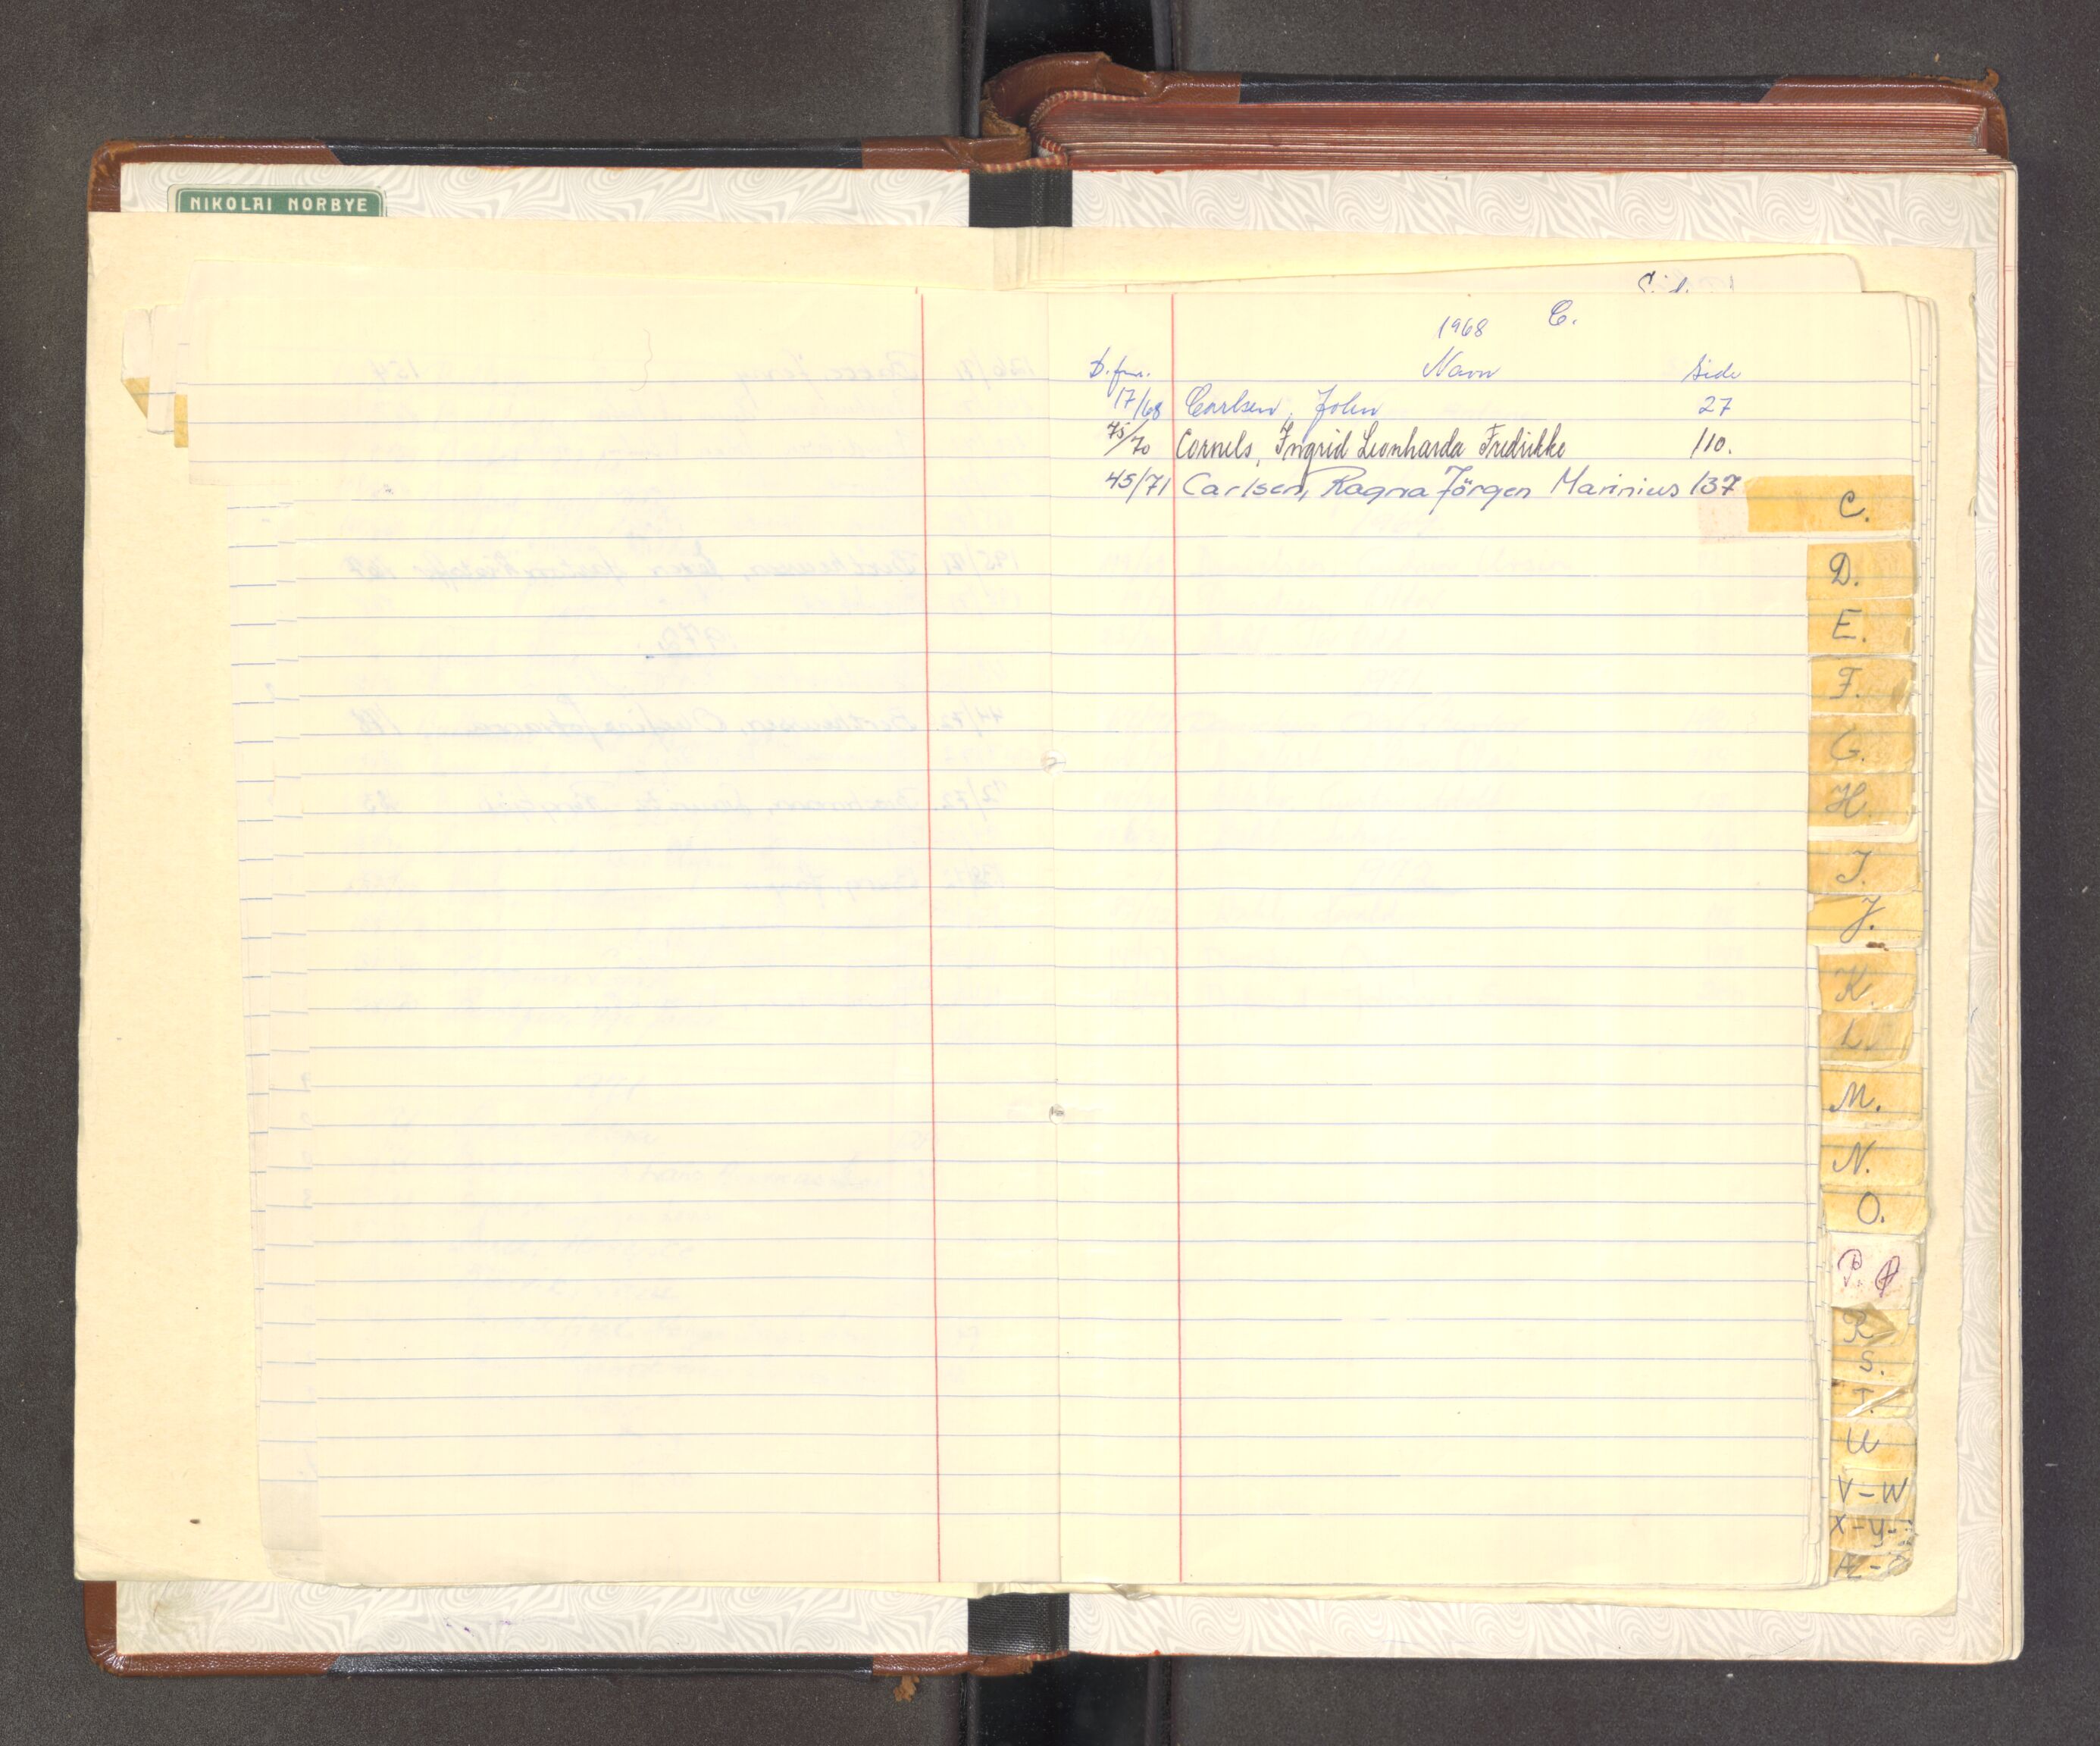 NIKOLAI NORBYE
1968 C.
D.fnr. Navn Side
17/68 Carlsen, John 27
75/70 Cornels, Ingrid Leonharda Fredrikke 110.
45/71 Carlsen, Ragna Jörgen Marinius 137
C.
D.
E.
F.
G.
H.
I.
J.
K.
L.
M.
N.
O.
P. Q
R
S.
T.
U
V-W
X-y-